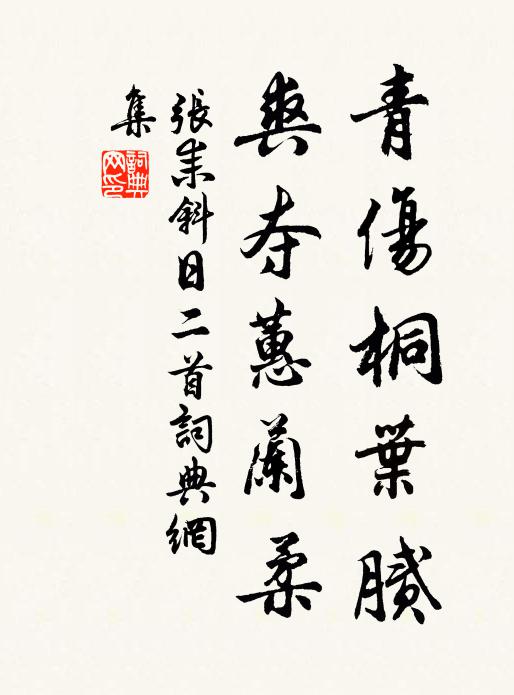 青傷桐葉膩
爽夺蕙蘭柔
張耒斜日二首詞典網
集
詞典网印